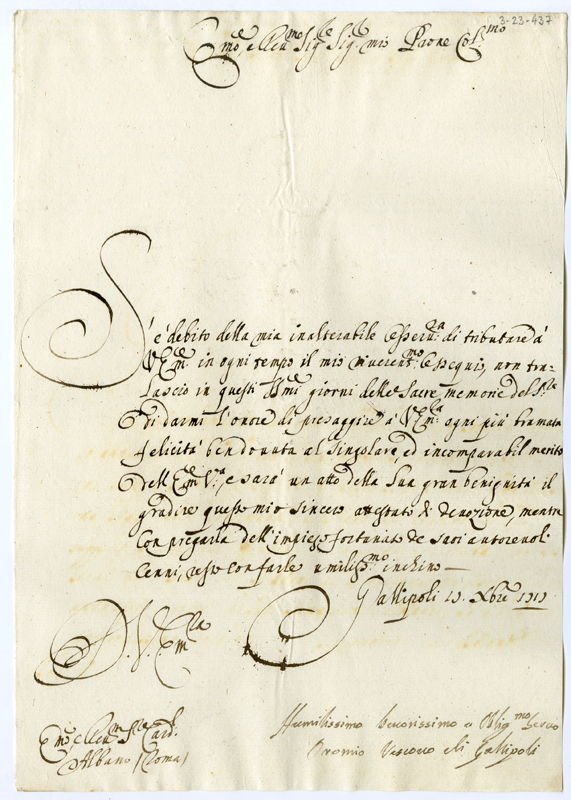 3-23-437
Em.o e Rev.mo Sig.re Sig.r mio Prone Col.mo
S'è debito della mia inalterabile osserv.za di tributare à
V. Em.za in ogni tempo il mio riverent.mo ossequio, non tra-
lascio in questi giorni delle Sacre memorie del
di darmi l'onore di presaggire à V. Em.za ogni più bramata
felicità ben dovuta al singolare, ed incomparabil merito
dell'Em. V.ra, e sarà un atto della sua gran benignità il
gradire questo mio sincero attestato di devozione, mentre
con pregarla dell'impiego fortunato de suoi autorevoli
cenni, resto con farle umiliss.mo inchino
Gallipoli Xbre
D. V. Em.za
Em.o e Rev.mo Sig.re Card.l
Albano (Roma)
Humilissimo Devotissimo e Oblig.mo Servo
Oronzio Vescovo di Gallipoli